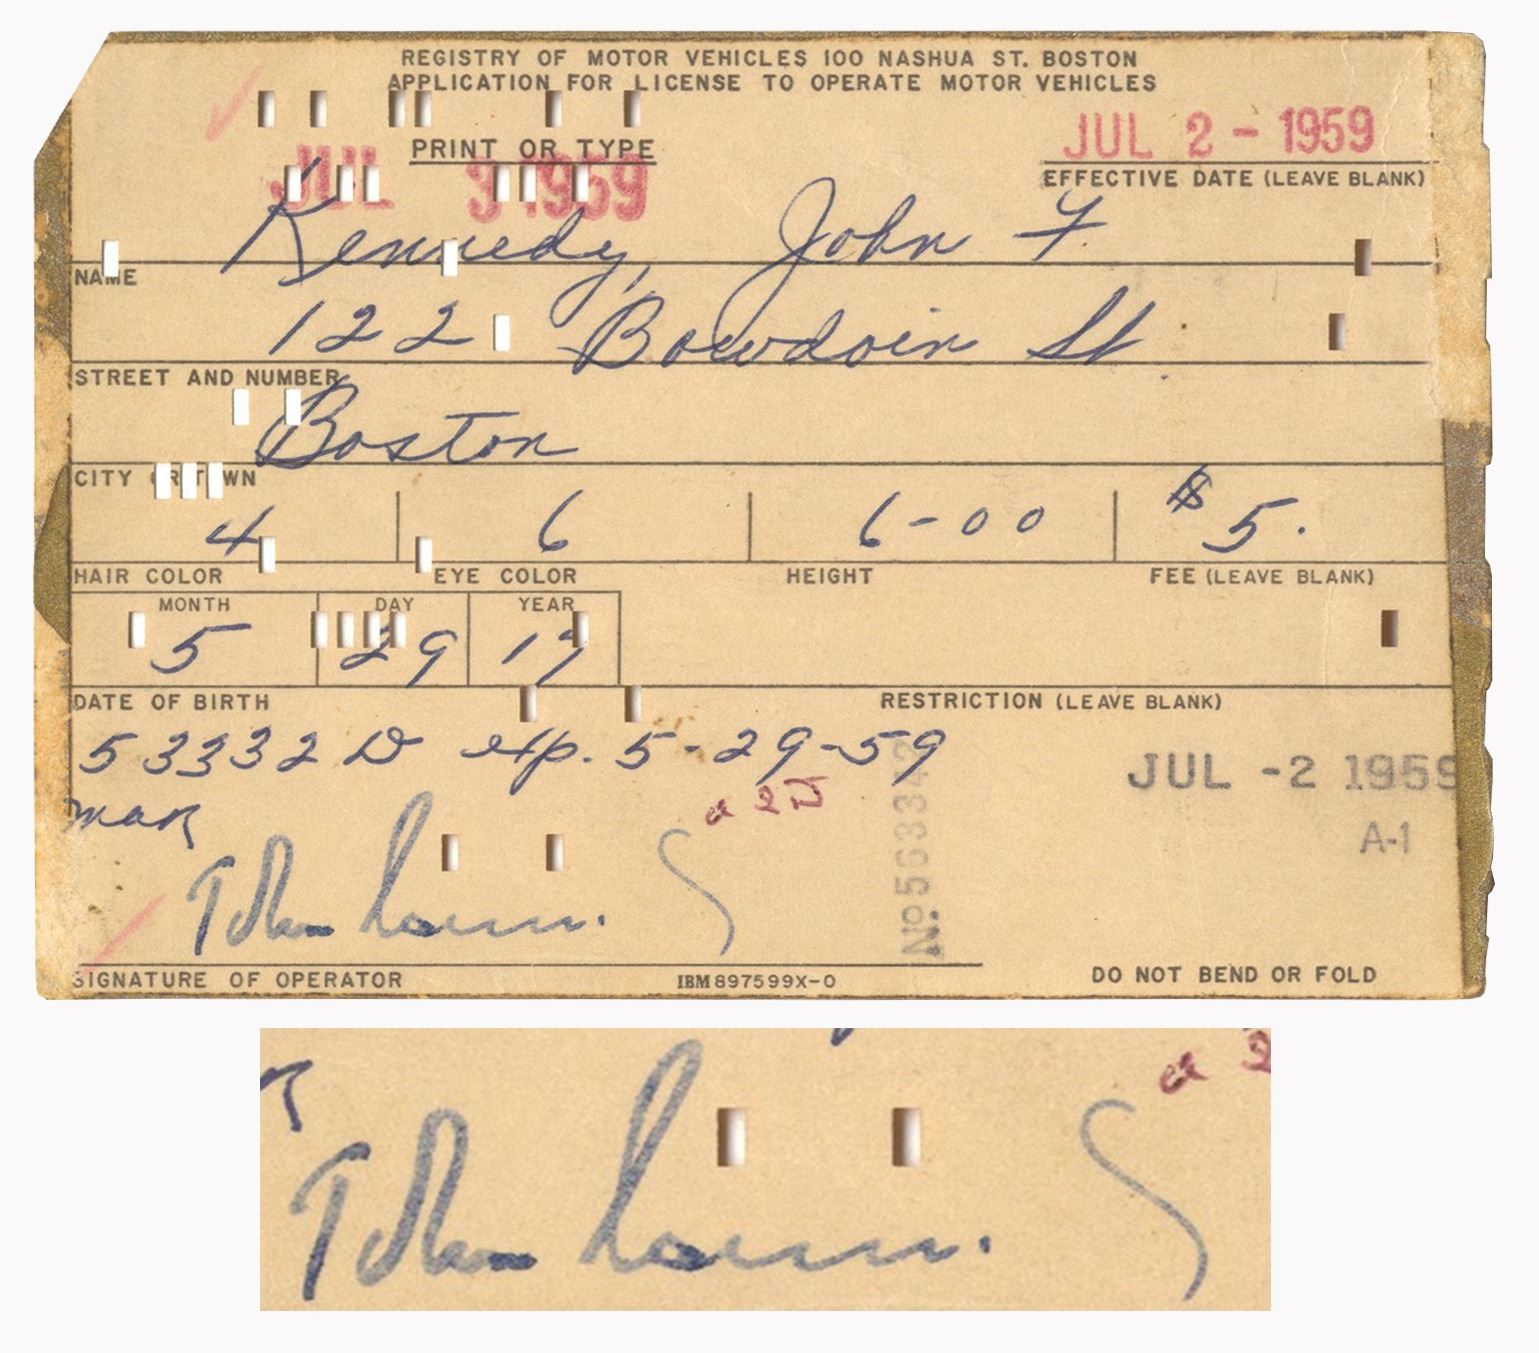 REGISTRY OF MOTOR VEHICLES 100 NASHUA ST. BOSTON
APPLICATION FOR LICENSE TO OPERATE MOTOR VEHICLES
JUL 2 - 1959
PRINT OR TYPE
JUL 3 1959
EFFECTIVE DATE (LEAVE BLANK)
Kennedy, John F.
NAME
122 Bowdoin St.
STREET AND NUMBER
Boston
CITY OR TOWN
4 6 6-00 $5.
HAIR COLOR EYE COLOR HEIGHT FEE (LEAVE BLANK)
MONTH DAY YEAR
5 29 17
DATE OF BIRTH RESTRICTION (LEAVE BLANK)
53332 D exp. 5-29-59
JUL -2 1959
A-1
SIGNATURE OF OPERATOR IBM 897599X-0 DO NOT BEND OR FOLD